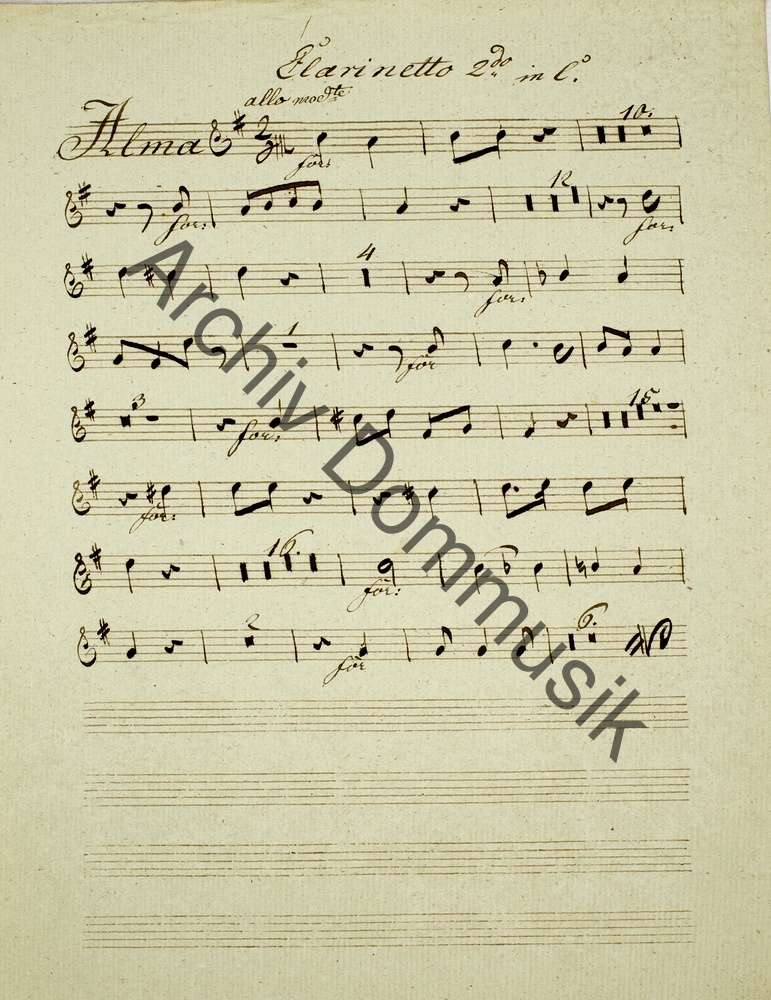 Clarinetto 2do in C.
allo modte
Alma 2 for: 10.
for: 12 for:
4 for:
1 for
3 for: 15
for:
16. for:
2 for 6.
Archiv Dommusik